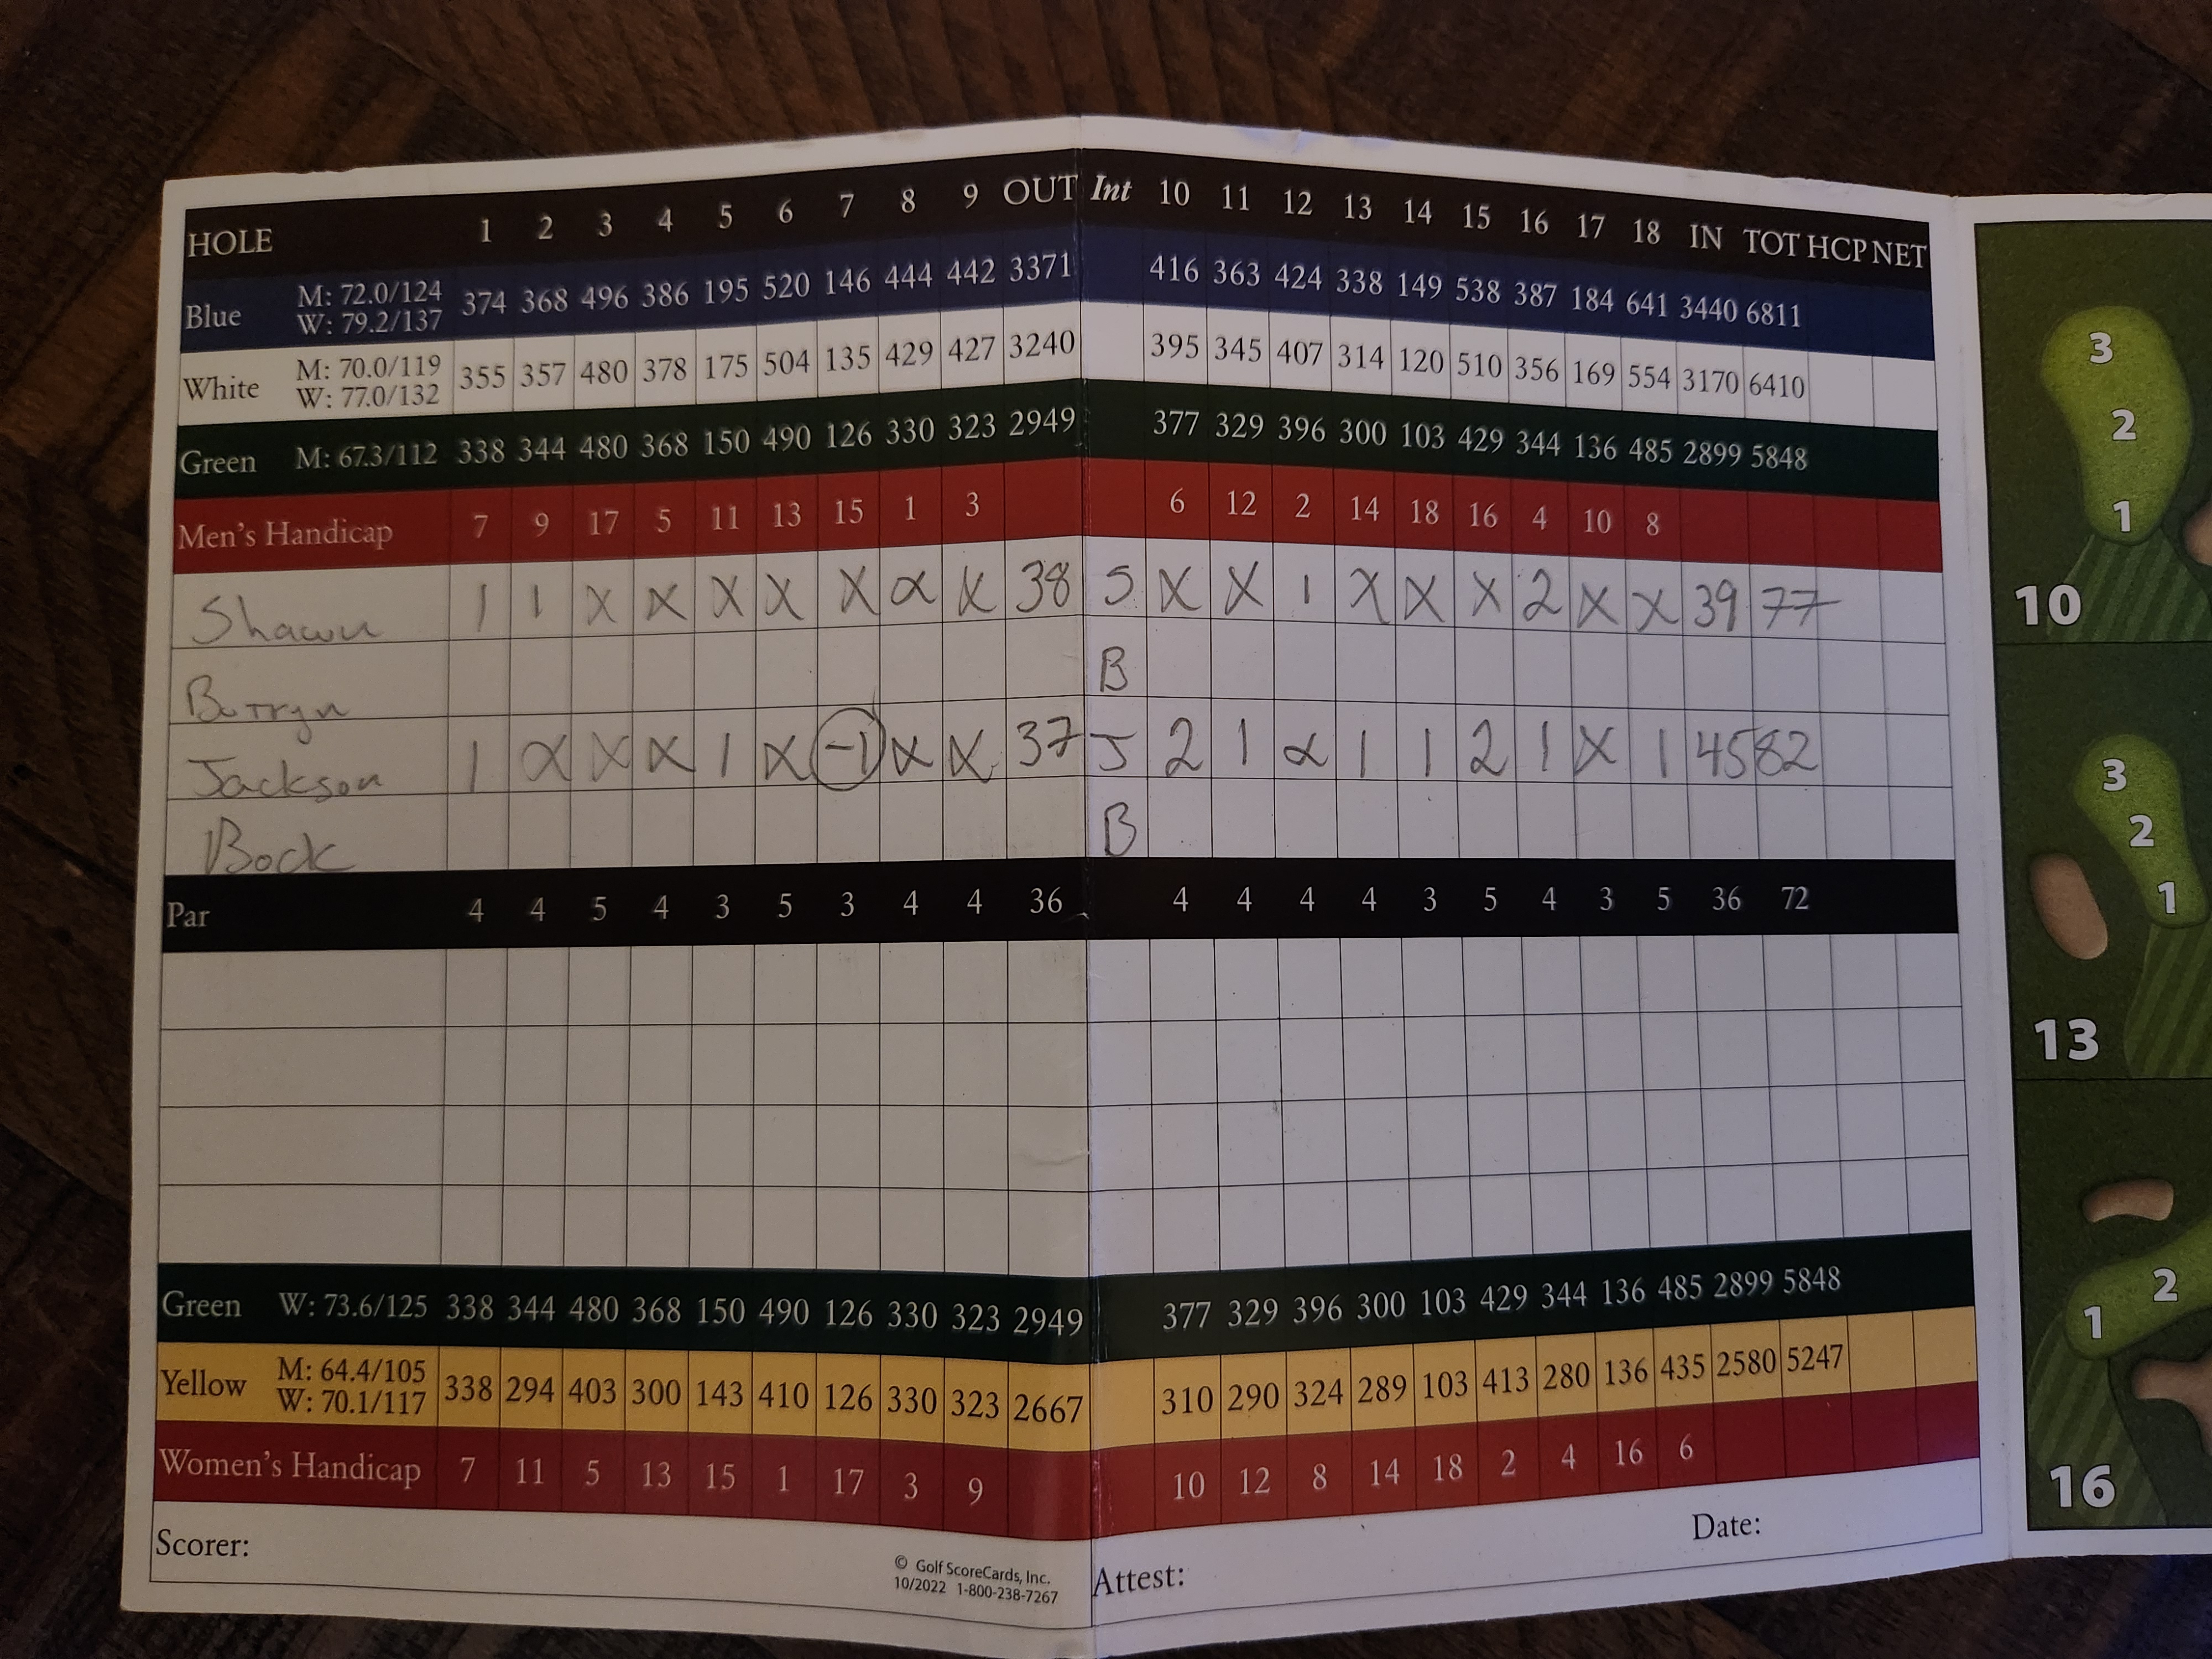 HOLE 1 2 3 4 5 6 7 8 9 OUT Int 10 11 12 13 14 15 16 17 18 IN TOT HCP NET
Blue M: 72.0/124 W: 79.2/137 374 368 496 386 195 520 146 444 442 3371 416 363 424 338 149 538 387 184 641 3440 6811
White M: 70.0/119 W: 77.0/132 355 357 480 378 175 504 135 429 427 3240 395 345 407 314 120 510 356 169 554 3170 6410
Green M: 67.3/112 338 344 480 368 150 490 126 330 323 2949 377 329 396 300 103 429 344 136 485 2899 5848
Men's Handicap 7 9 17 5 11 13 15 1 3 6 12 2 14 18 16 4 10 8
Shawn 1 1 X X X X X X X 38 S X X 1 X X X 2 X X 39 77
B
Jackson 1 X X X 1 X -1 X X 37 J 2 1 X 1 1 2 1 X 1 45 82
Bock B
Par 4 4 5 4 3 5 3 4 4 36 4 4 4 4 3 5 4 3 5 36 72
Green W: 73.6/125 338 344 480 368 150 490 126 330 323 2949 377 329 396 300 103 429 344 136 485 2899 5848
Yellow M: 64.4/105 W: 70.1/117 338 294 403 300 143 410 126 330 323 2667 310 290 324 289 103 413 280 136 435 2580 5247
Women's Handicap 7 11 5 13 15 1 17 3 9 10 12 8 14 18 2 4 16 6
Scorer:
© Golf ScoreCards, Inc.
10/2022 1-800-238-7267
Attest:
Date:
3
2
1
10
3
2
1
13
2
1
16